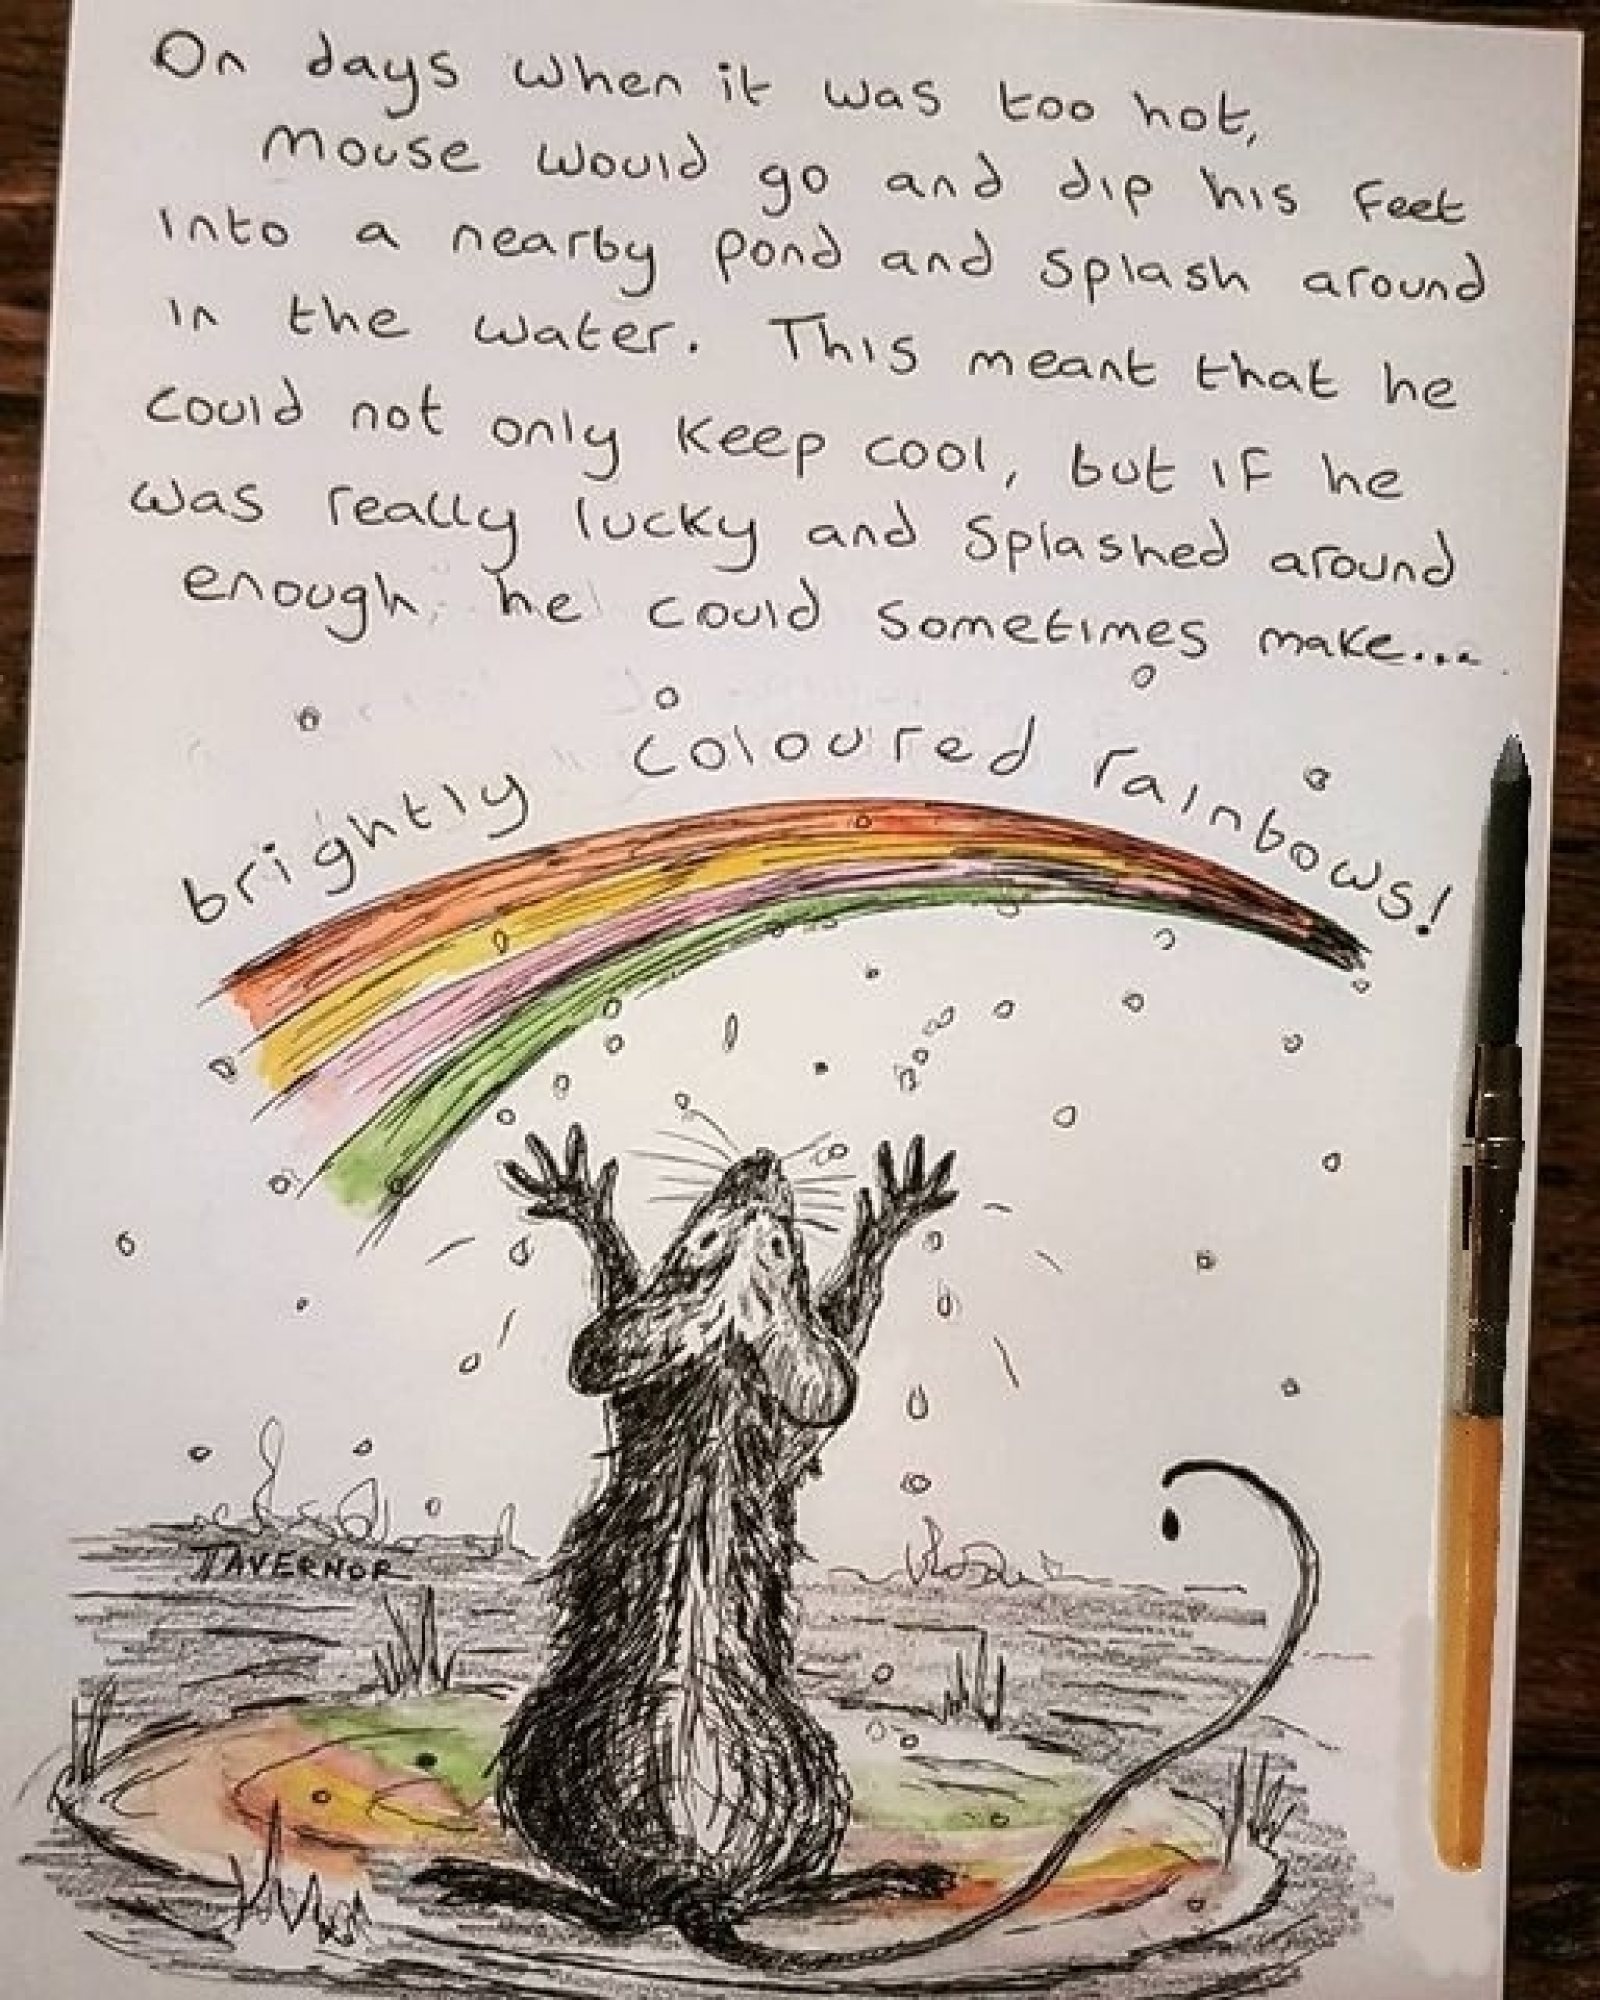 On days when it was too hot,
Mouse would go and dip his feet
into a nearby pond and splash around
in the water. This meant that he
could not only keep cool, but if he
was really lucky and splashed around
enough, he could sometimes make...
brightly coloured rainbows!
TAVERNOR